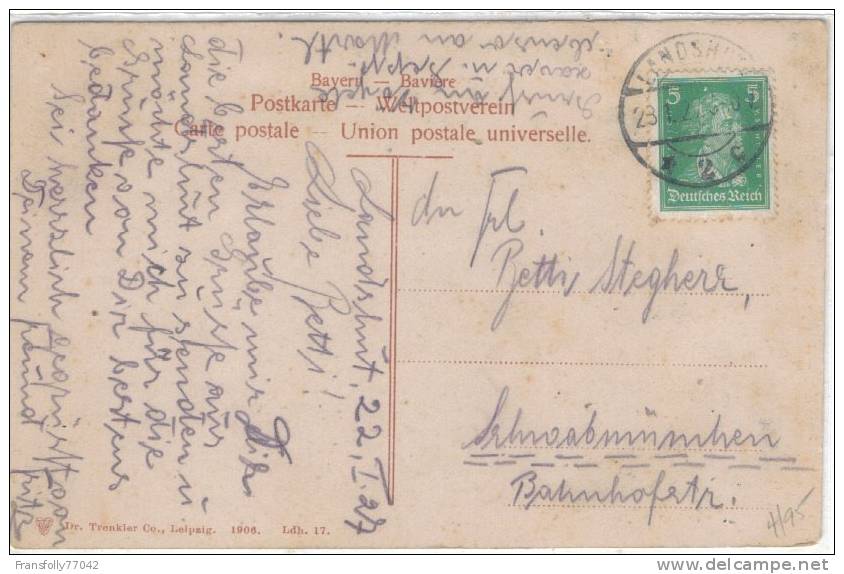 Bayern — Bavière
Postkarte — Weltpostverein
Carte postale — Union postale universelle.
LANDSHUT
5 5
Deutsches Reich
An
Frl.
Betti Stegherr,
Schwabmünchen
Bahnhofstr.
Landshut, 22. I. 27
Liebe Betti!
Erlaube mir Dir
die besten Grüße aus
Landshut zu senden u.
möchte mich für die
Grüße von Dir bestens
bedanken
Sei herzlich gegrüßt von
Deinem Freund Fritz
Dr. Trenkler Co., Leipzig. 1906. Ldh. 17.
4/95
Fransfolly77042
delcampe.net